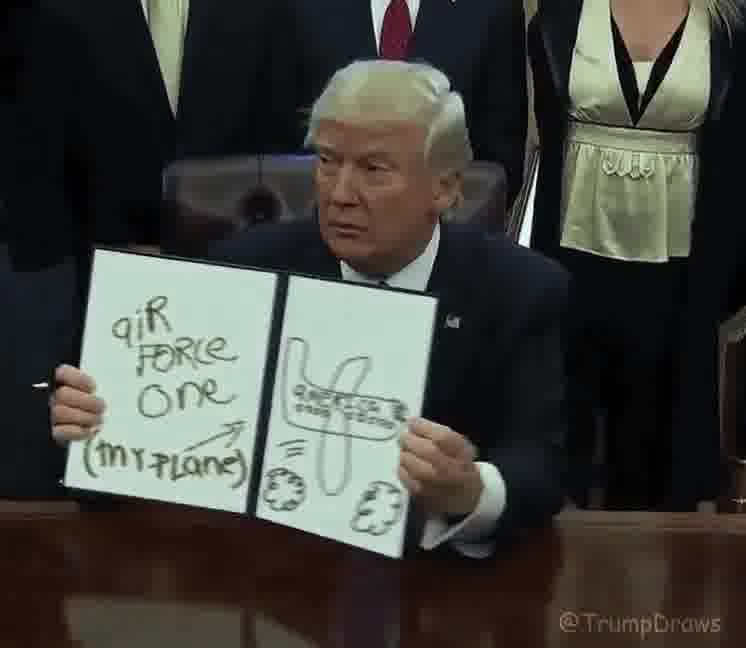 aiR
FORce
one
(my PLane)
AMERICA
@TrumpDraws